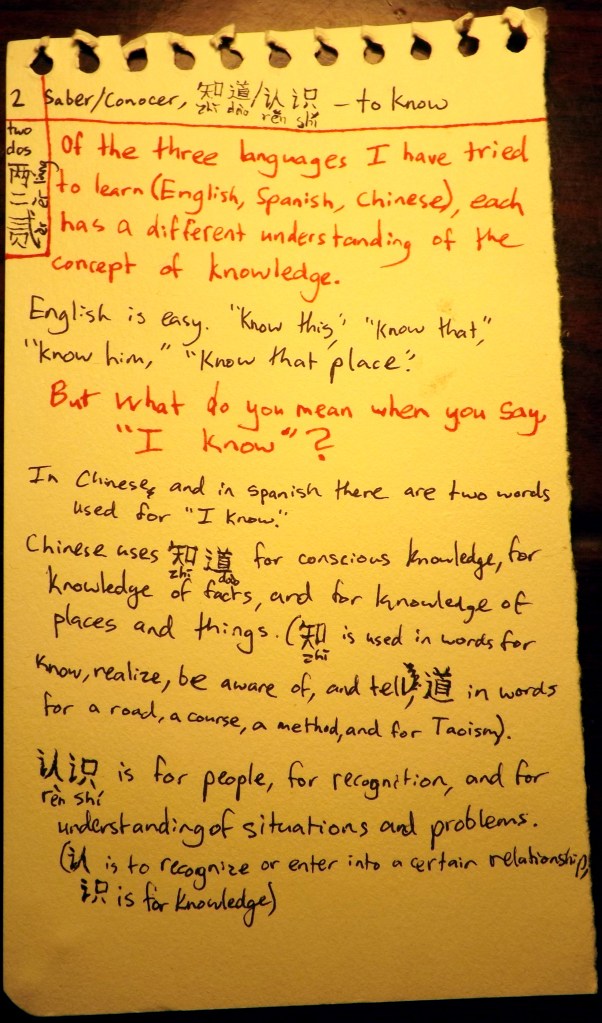 2 Saber/Conocer, 知道/认识 - to know
zhī dào rèn shí
two
dos
两
二
贰
èr èr liǎng
Of the three languages I have tried
to learn (English, Spanish, Chinese), each
has a different understanding of the
concept of knowledge.
English is easy. "Know this," "Know that,"
"Know him," "Know that place."
But what do you mean when you say,
"I know"?
In Chinese, and in Spanish there are two words
used for "I know."
Chinese uses 知道 for conscious knowledge, for
zhī dào
knowledge of facts, and for knowledge of
places and things. (知 is used in words for
zhī
know, realize, be aware of, and tell, 道 in words
for a road, a course, a method, and for Taoism).
认识 is for people, for recognition, and for
rèn shí
understanding of situations and problems.
(认 is to recognize or enter into a certain relationship,
识 is for knowledge)